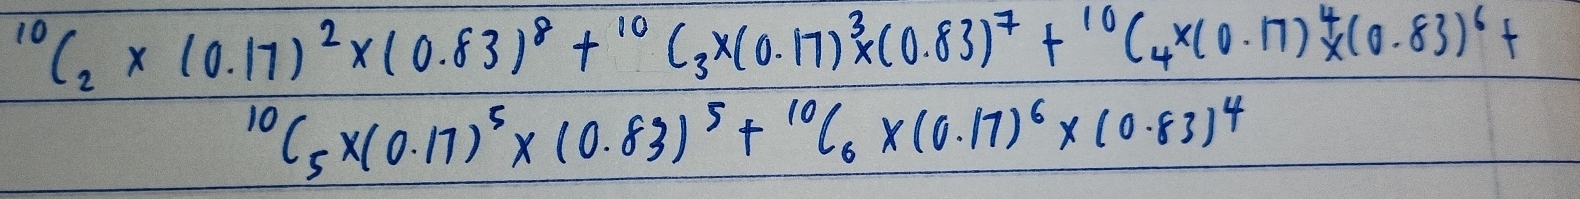 ¹⁰C₂ × (0.17)² × (0.83)⁸ + ¹⁰C₃ × (0.17)³ × (0.83)⁷ + ¹⁰C₄ × (0.17)⁴ × (0.83)⁶ +
¹⁰C₅ × (0.17)⁵ × (0.83)⁵ + ¹⁰C₆ × (0.17)⁶ × (0.83)⁴